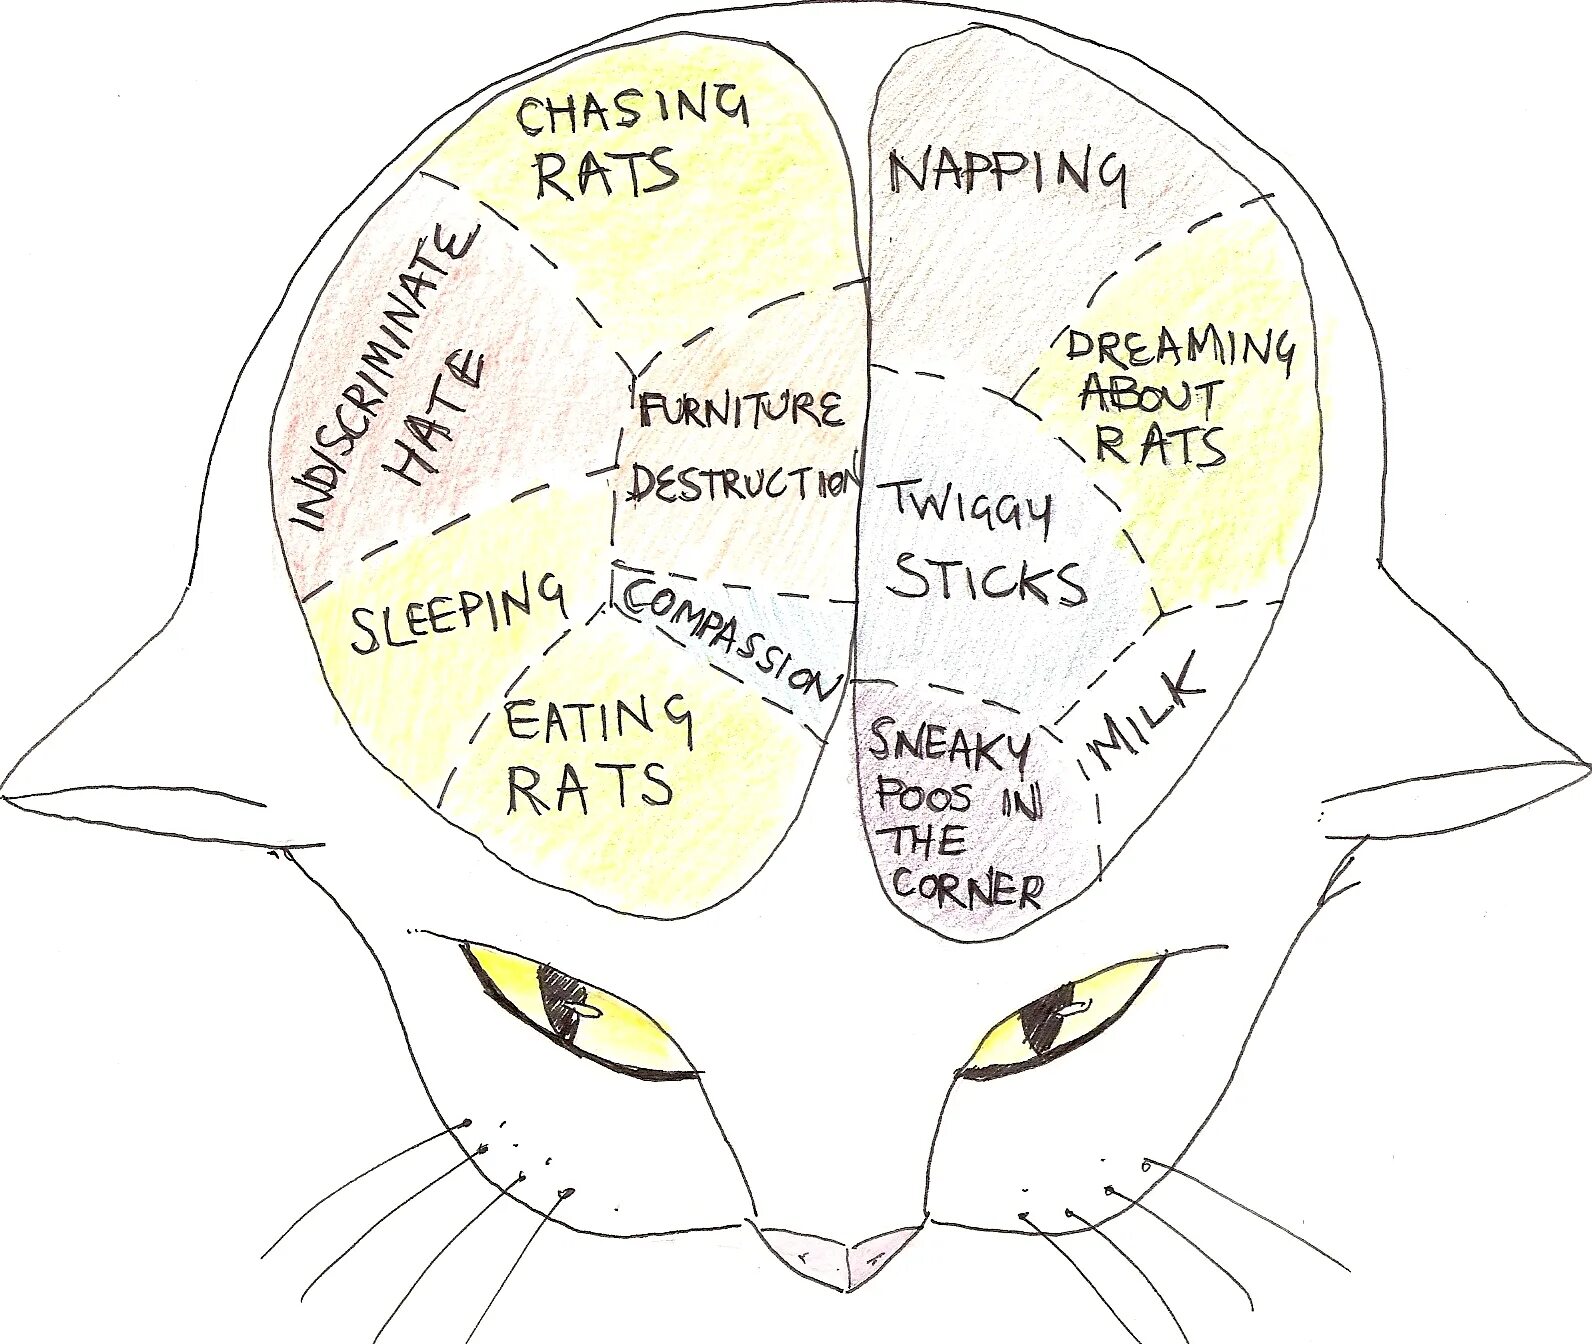 CHASING
RATS
NAPPING
INDISCRIMINATE
HATE
FURNITURE
DESTRUCTION
DREAMING
ABOUT
RATS
TWIGGY
STICKS
SLEEPING
COMPASSION
EATING
RATS
SNEAKY
POOS IN
THE
CORNER
MILK